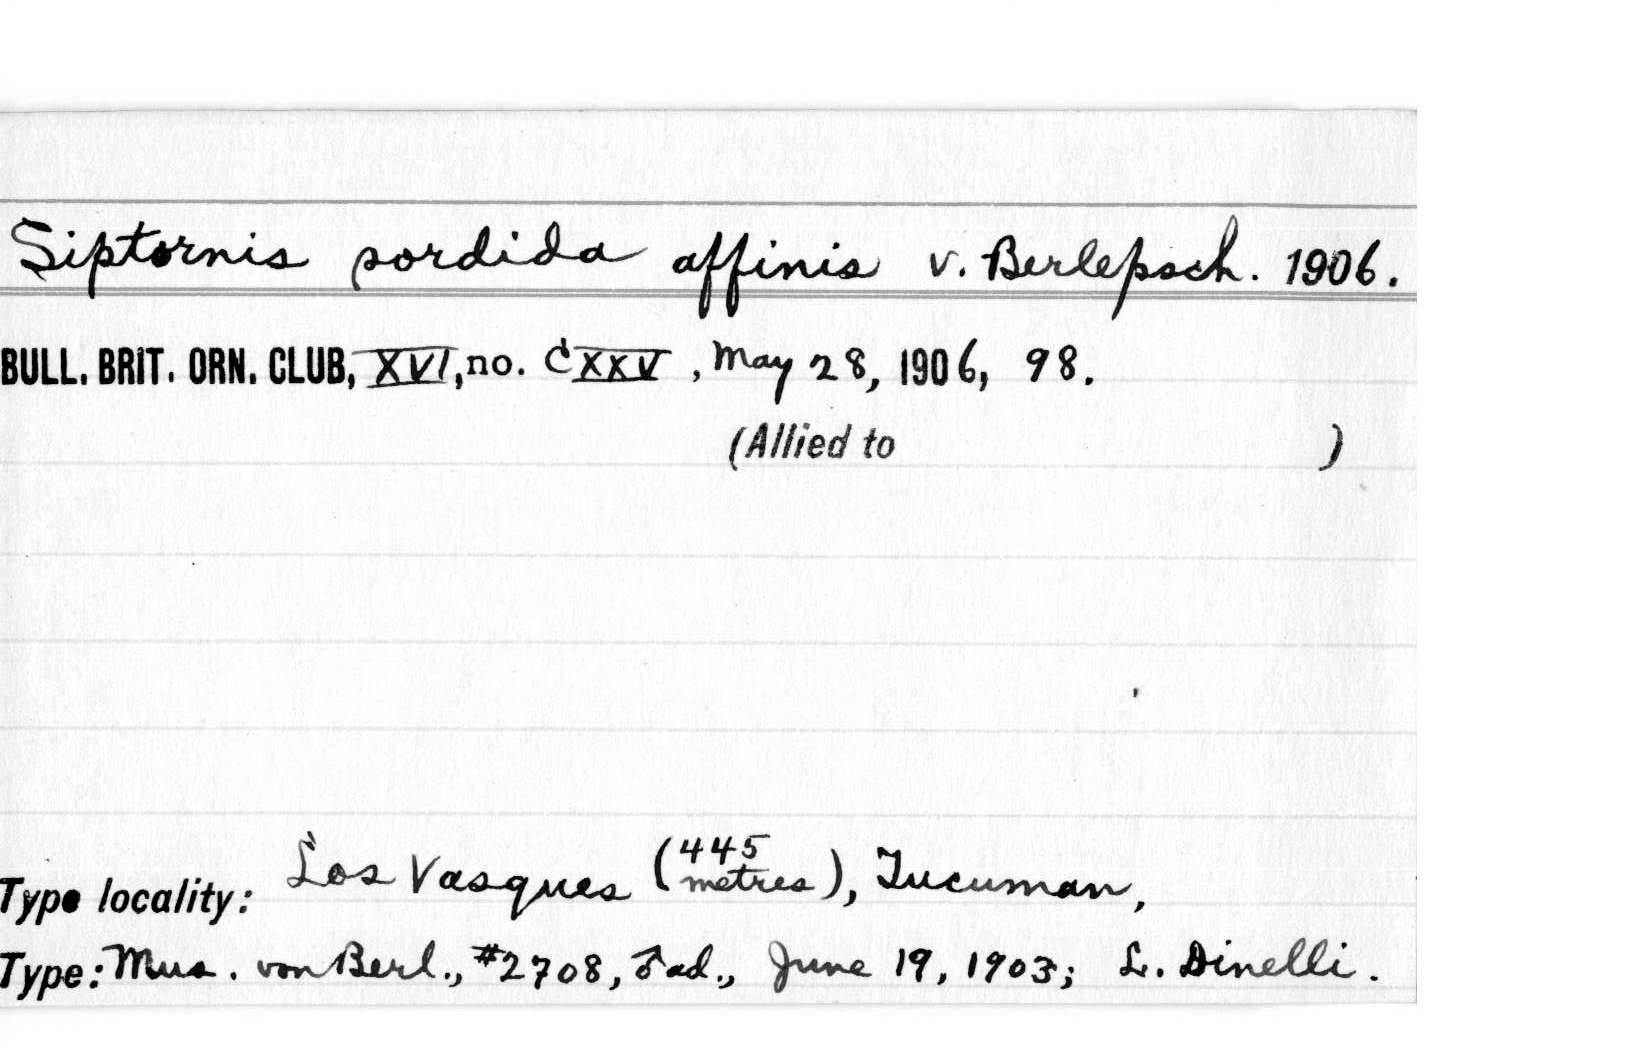 Siptornis sordida affinis v. Berlepsch. 1906.
BULL. BRIT. ORN. CLUB, XVI, no. CXXV, May 28, 1906, 98.
(Allied to )
Type locality: Los Vasques (445 metres), Tucuman,
Type: Mus. von Berl., #2708, ♂ ad., June 19, 1903; L. Dinelli.